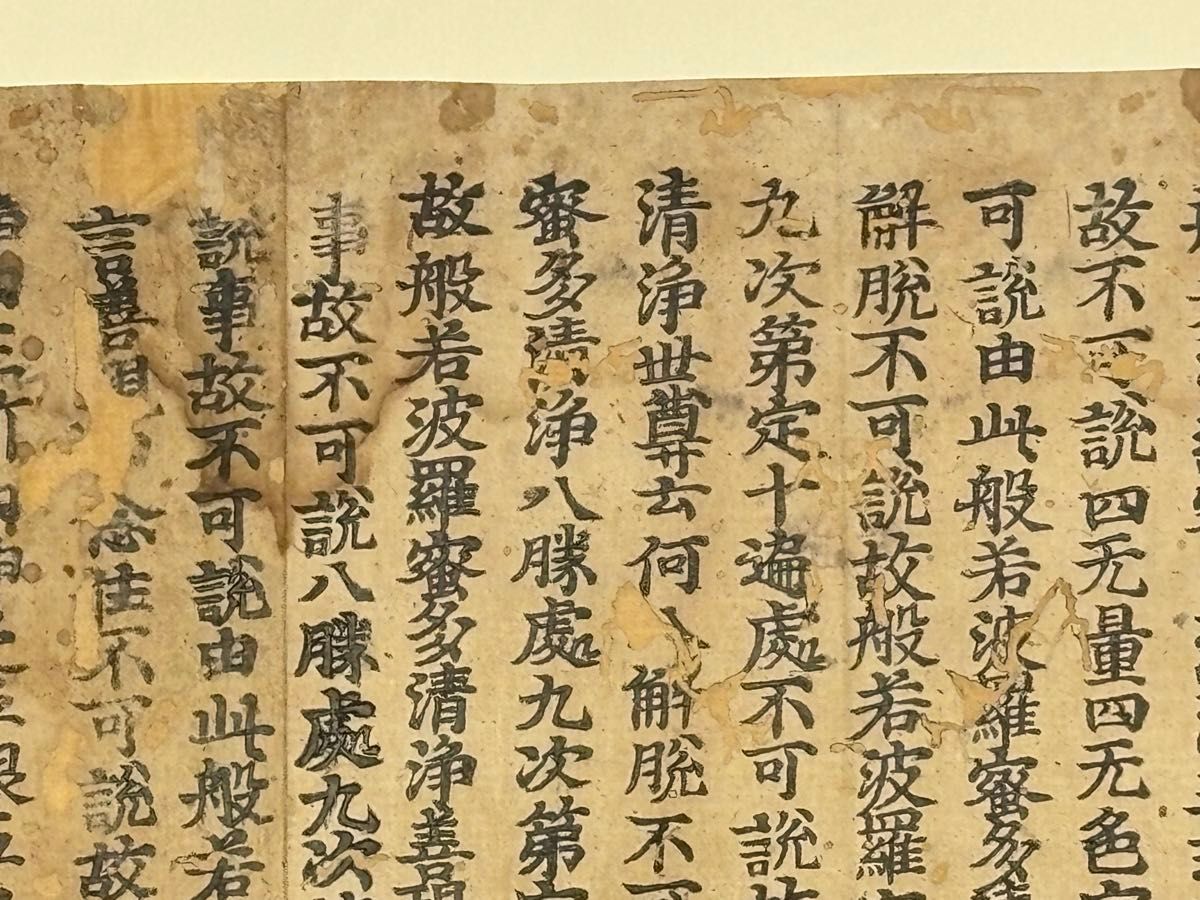 故不可説四无量四无色
可説由此般若波羅蜜多清
解脫不可説故般若波羅
九次第定十遍處不可説故
清淨世尊云何八解脫不可
蜜多清淨八勝處九次第定
故般若波羅蜜多清淨善現
事故不可説八勝處九次
説事故不可説由此般若
言善現 念住不可説故